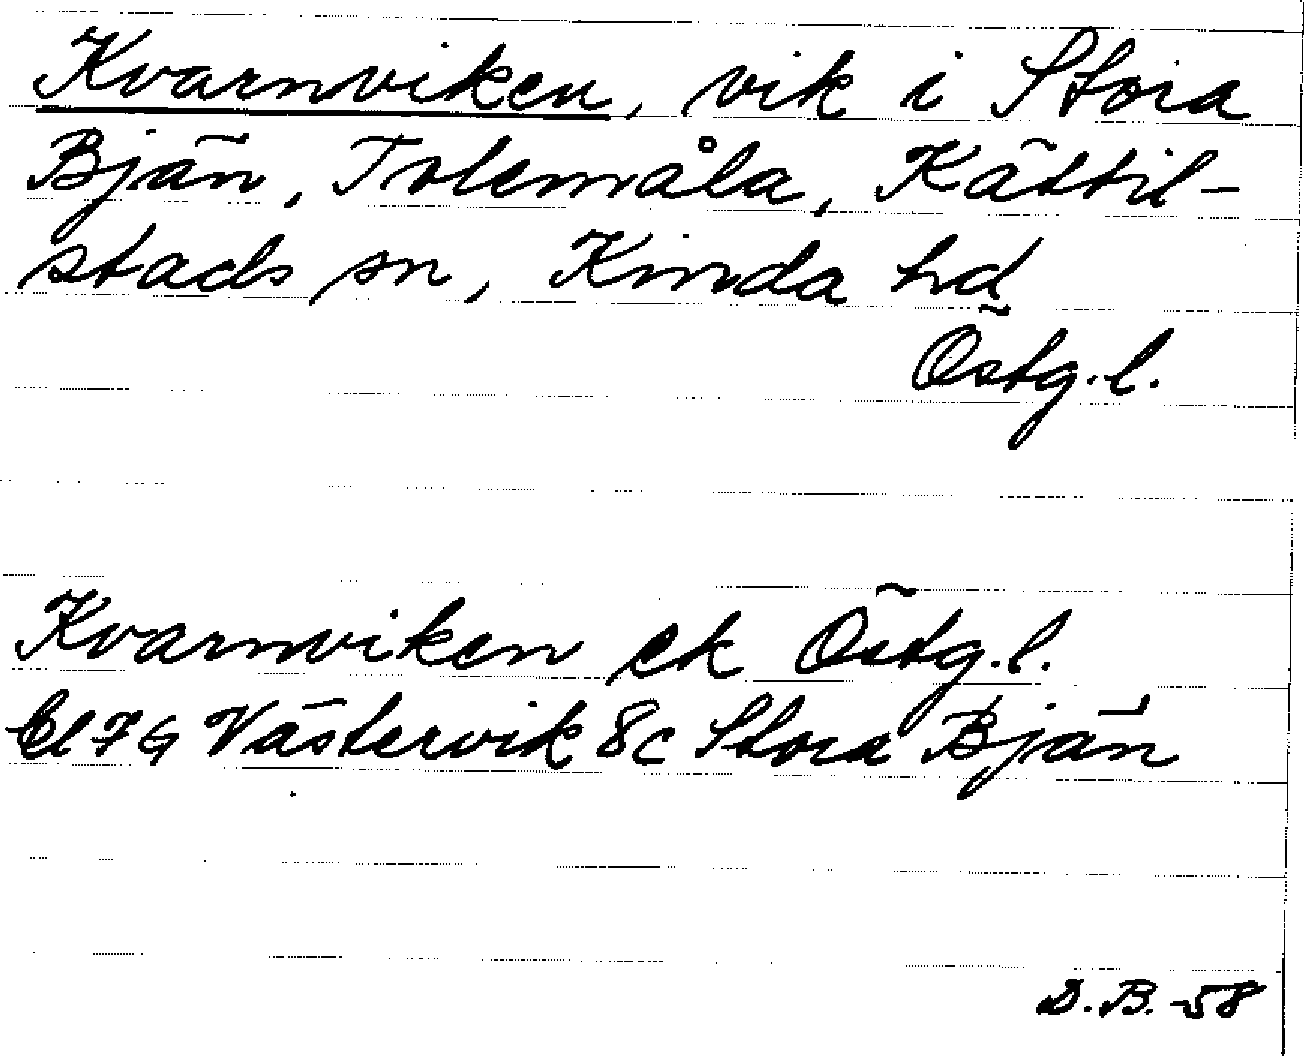 Kvarnviken, vik i Stora
Bjän, Tolemåla, Kättil-
stads sn, Kinda hd
Östg. l.
Kvarnviken ek Östg. l.
7G Västervik 8c Stora Bjän
D. B. -58